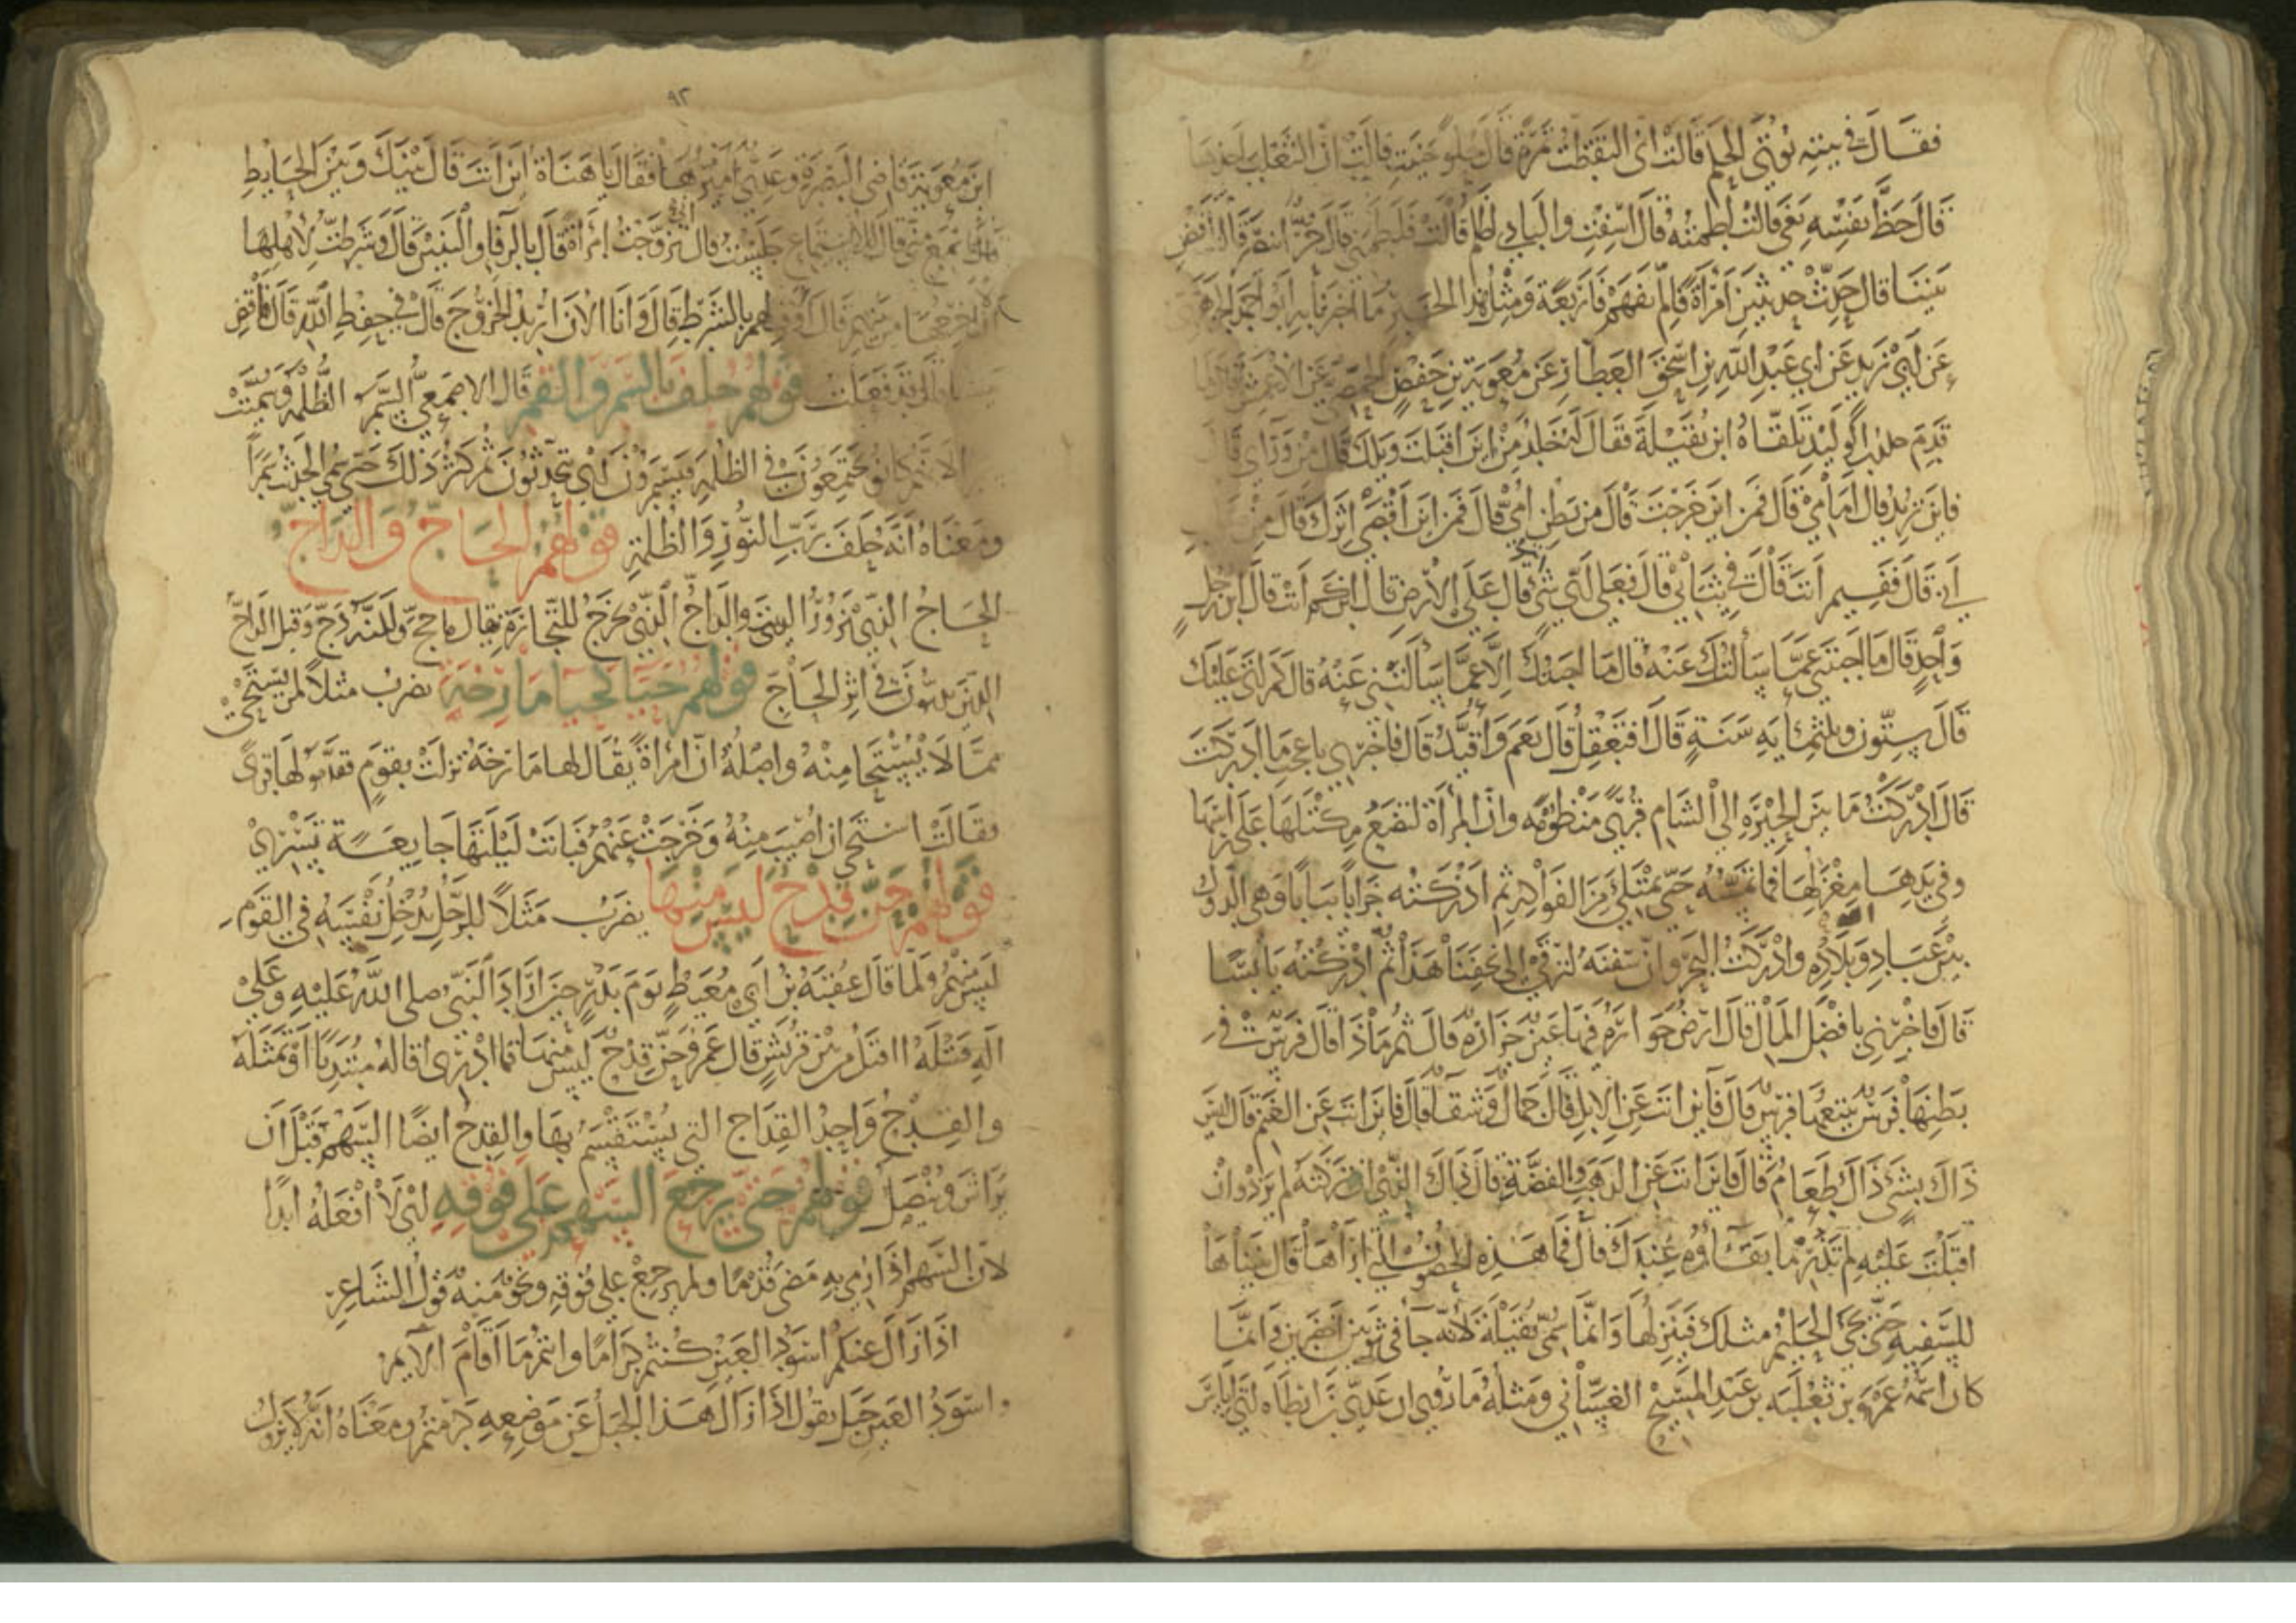 فقال في بيته يؤتى الحكم قالت اي التقطت تمرة قال حلوا جنيت قالت ان الثعلب اخذها
قال حظ نفسه بغى قالت لطمته قال اسفت والبادي اظلم قالت فلطمني قال حر انتصر قالت اقض
بيننا قال حدث حديثين امراة فان لم تفهم فاربعة ومثل هذا الحديث ما اخبرنا به ابو احمد الجوهري
عن ابي زيد عن ابي عبد الله بن اسحق العطار عن معوية بن حفص عن الاعمش قال
قدم خلد بن الوليد تلقاه ابن بقيلة فقال له خلد من اين اقبلت ويلك قال من وراي قال
فاين تريد قال امامي قال فمن اين خرجت قال من بطن امي قال فمن اين اقصى اثرك قال من
ابي قال ففيم انت قال في ثيابي قال فعلى اي شي قال على الارض قال ابن كم انت قال ابن رجل
واحد قال ما اجبتني عما سألتك عنه قال ما اجبتك الا عما سألتني عنه قال كم اتى عليك
قال ستون وثلثماية سنة قال افتعقل قال نعم واقيد قال فاخبرني باعجب ما ادركت
قال ادركت ما بين الحيرة الى الشام قرى منظومة وان المراة لتضع مكتلها على راسها
وفي يدها مغزلها فما تمسه حتى يمتلي من الفواكه ثم ادركته خرابا يبابا وهي الدوك
بين عباد الله وبلاده وادركت البحر وان سفنه لترقى الى نجفنا هذا ثم ادركته يابسا
قال فاخبرني بافضل المال قال ارض خوارة فيها عين خرارة قال ثم ماذا قال فرس في
بطنها فرس يتبعها فرس قال فاين انت عن الابل قال جمال وشقا قال فاين انت عن الغنم قال ليس
ذاك بشي ذاك طعام قال فاين انت عن الذهب والفضة قال ذاك الذي ان تركته لم يزد وان
اقبلت عليه لم تدر ما بقاؤه عندك قال فما هذه الحصون التي اراها قال بنيناها
للسفيه حتى يجي الحليم مثلك فينزلها وانما سمي بقيلة لانه جا في ثوبين اخضرين وانما
كان اسمه عمرو بن ثعلبه بن عبد المسيح الغساني ومثله ما روي ان عدي بن ارطاه اتى اياس
٩٢
ابن معوية قاضي البصرة وعدي اميرها فقال يا هناة اين انت قال بينك وبين الحايط
قال تسمع مني قال للاستماع جلست قال اني تزوجت امراة قال بالرفا والبنين قال وشرطت لاهلها
ان لا اخرجها من بينهم قال اوف لهم بالشرط قال وانا الان اريد الخروج قال في حفظ الله قال فاقض
بيننا قال قد فعلت قولهم حلف بالسمر والقمر قال الاصمعي السمر الظلمة وسميت
لانهم كانوا يجتمعون في الظلمة فيسمرون اي يتحدثون ثم كثر ذلك حتى سمي الحديث سمرا
ومعناه انه حلف برب النور والظلمة قولهم الحاج والداج
الحاج الذي يزور البيت والداج الذي يخرج للتجارة يقال ما حج ولكنه دج وقيل الداج
الذين يدبون في اثر الحاج قولهم حيا لحيا مارخة يضرب مثلا لمن يستحيي
مما لا يستحيا منه واصله ان امراة يقال لها مارخة نزلت بقوم فقدموا لها قرى
فقالت استحي ان اصيب منه وخرجت عنهم فباتت ليلتها جايعة تسري
قولهم حن قدح ليس منها يضرب مثلا للرجل يدخل نفسه في القوم
ليس منهم ولما قال عقبة بن ابي معيط يوم بدر حين اراد النبي صلى الله عليه وعلى
اله قتله ااقتل من بين قريش قال عمر وحن قدح ليس منها فما ادري اقاله مبتديا او تمثله
والقدح واحد القداح التي يستقسم بها والقدح ايضا السهم قبل ان
يراش وينصل قولهم حتى يرجع السهم على فوقه اي لا افعله ابدا
لان السهم اذا رمي به مضى قدما ولم يرجع على فوقه ونحو منه قول الشاعر
اذا زال عنكم اسود العين كنتم كراما وانتم ما اقام الايم
واسود العين جبل يقول اذا زال هذا الجبل عن موضعه كرمتم ومعناه انه لا يزول